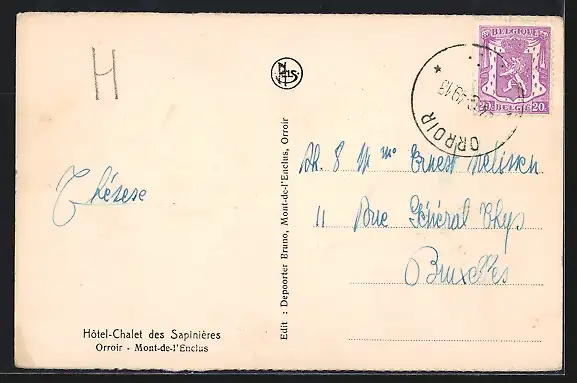 H
NELS
BELGIQUE
20 BELGIE 20
ORROIR
Thérèse
Edit : Depoorter Bruno, Mont-de-l'Enclus, Orroir
Mme Ernest Nelissen
11 Rue Général Thys
Bruxelles
Hôtel-Chalet des Sapinières
Orroir - Mont-de-l'Enclus